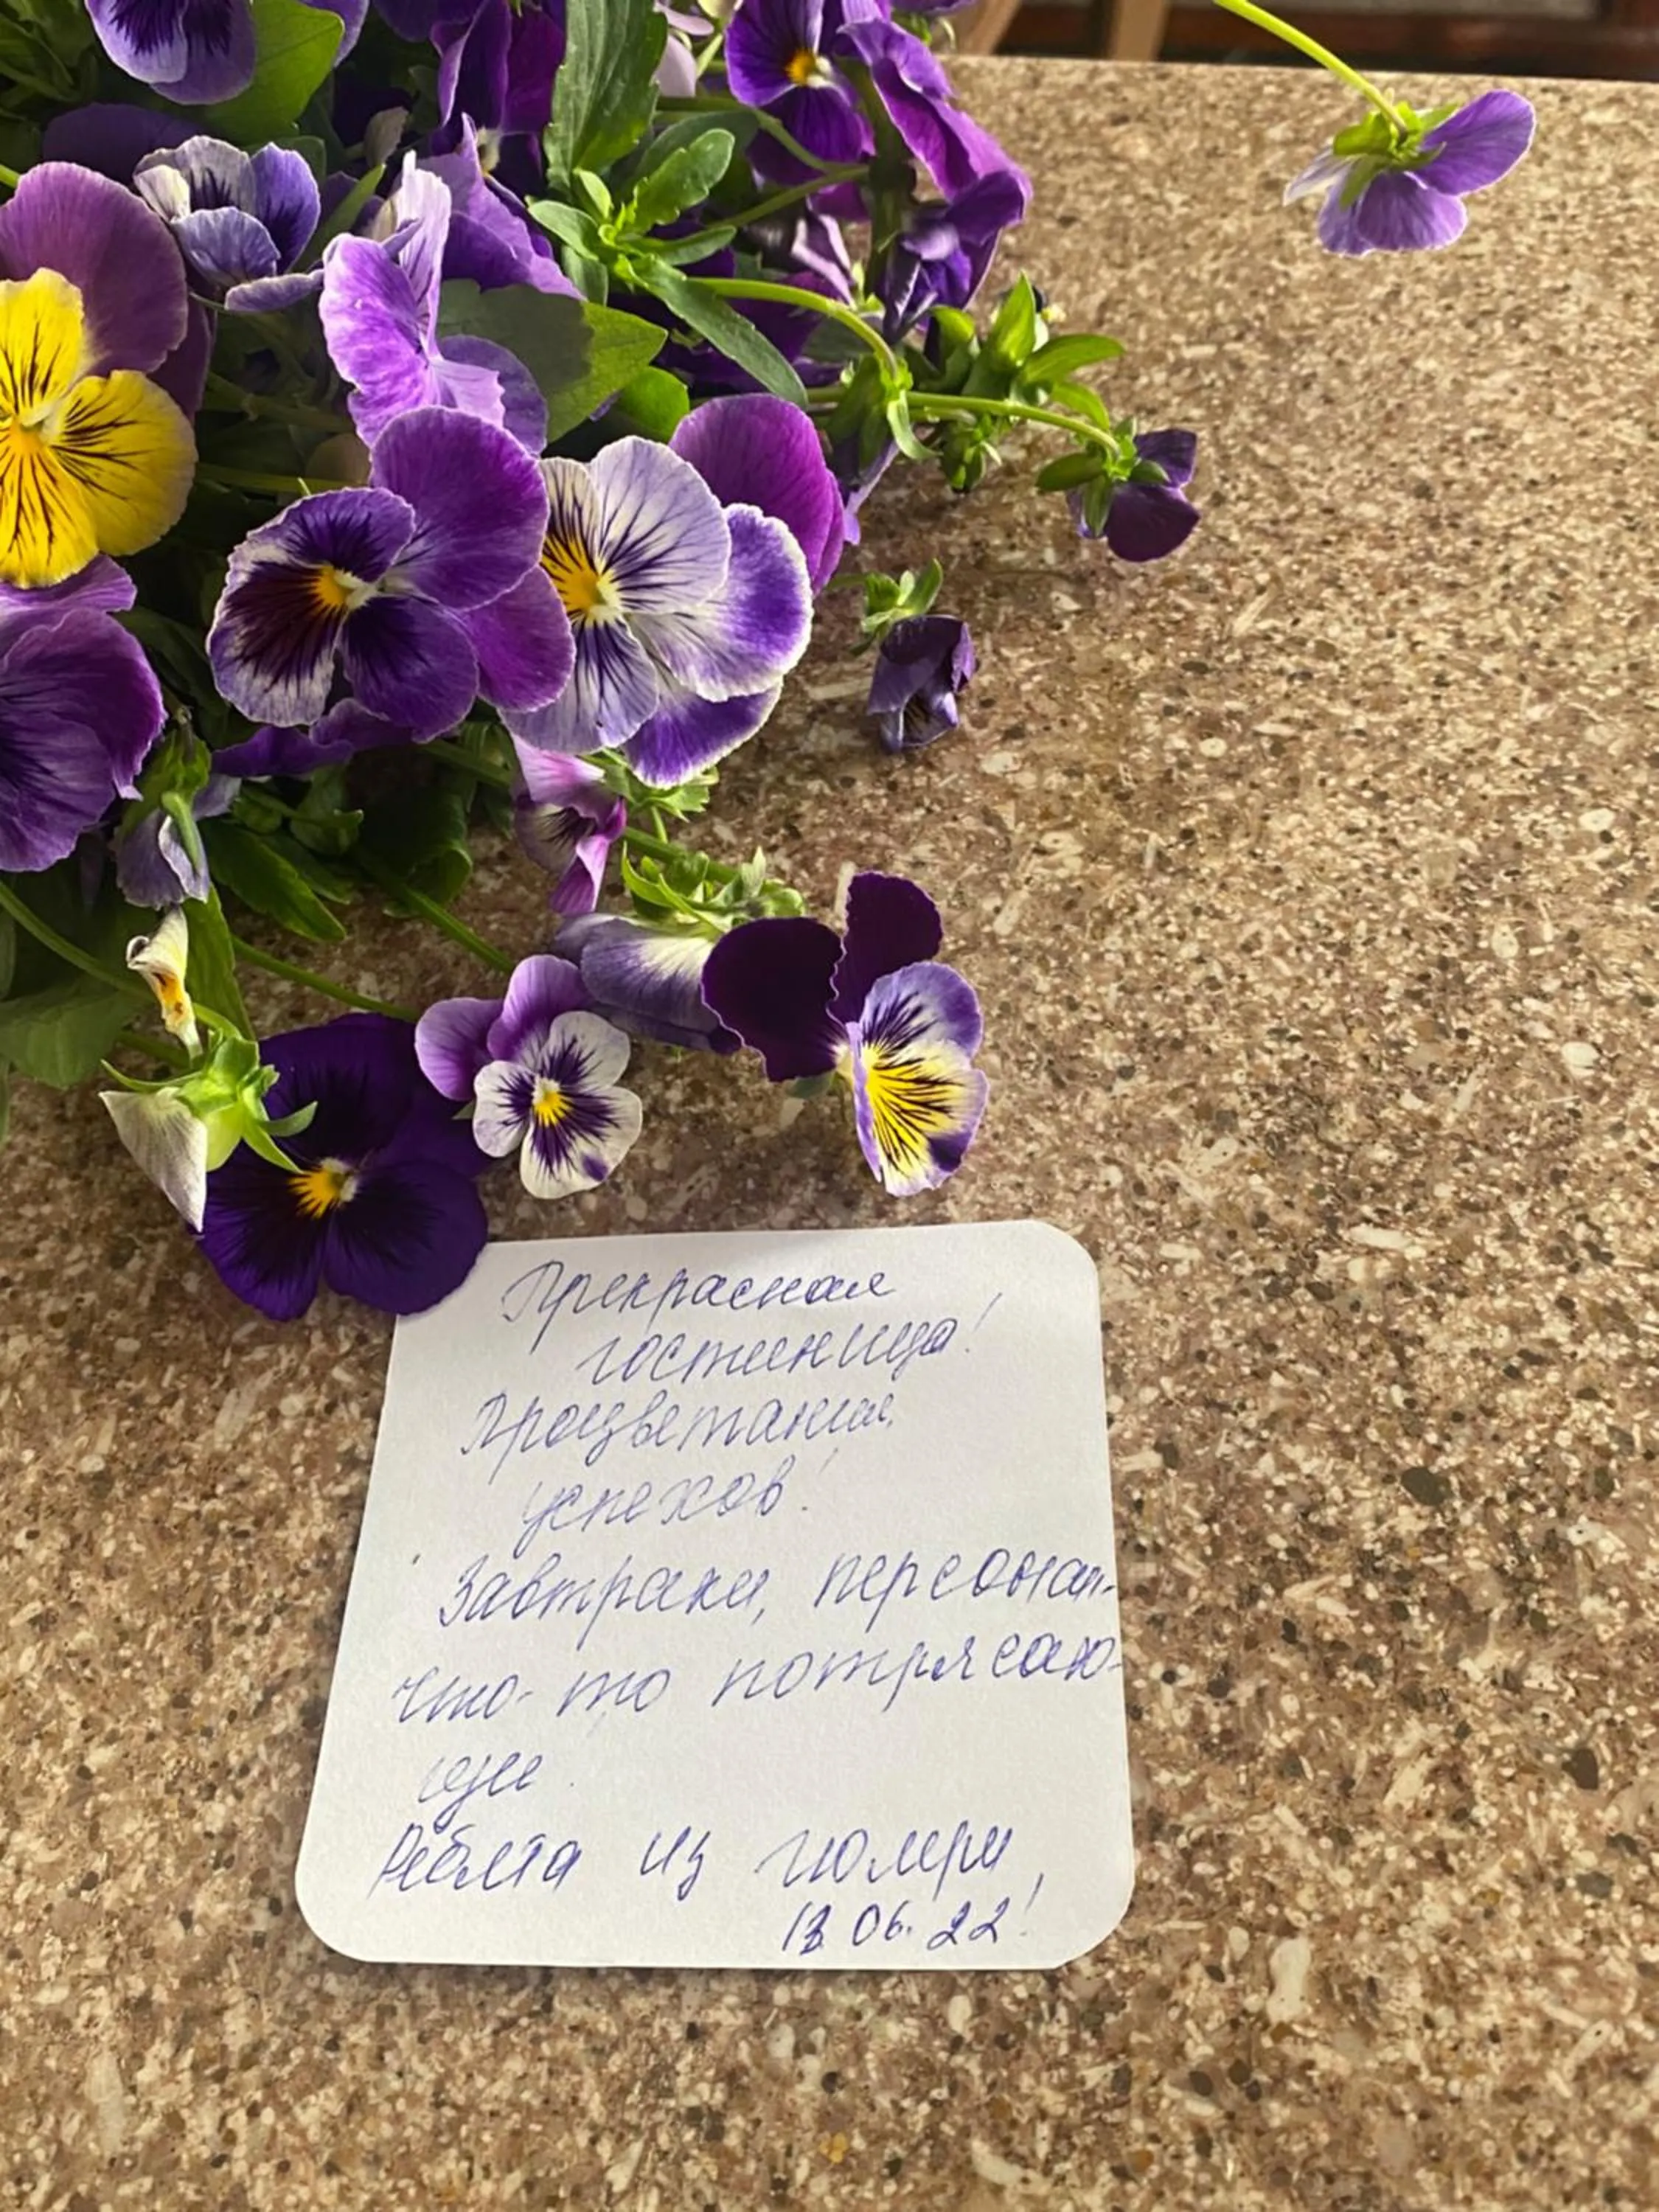 Прекрасная
гостиница!
Процветания,
успехов!
Завтраки, персонал-
что-то потрясаю-
щее.
Ребята из Гюмри
13.06.22!